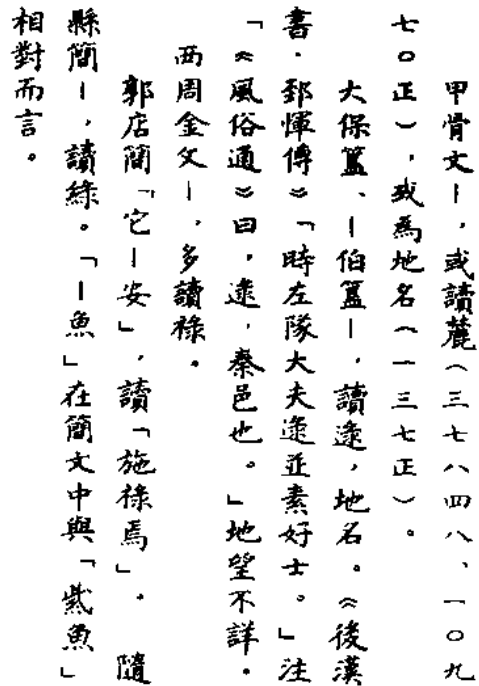 甲骨文丨，或讀麓（三七八四八、一〇九
七〇正），或爲地名（一三七正）。
大保簋、丨伯簋丨，讀逯，地名。《後漢
書·郅惲傳》「時左隊大夫逯並素好士。」注
「《風俗通》曰，逯，秦邑也。」地望不詳。
西周金文丨，多讀祿。
郭店簡「它丨安」，讀「施祿焉」。隨
縣簡丨，讀綠。「丨魚」在簡文中與「紫魚」
相對而言。